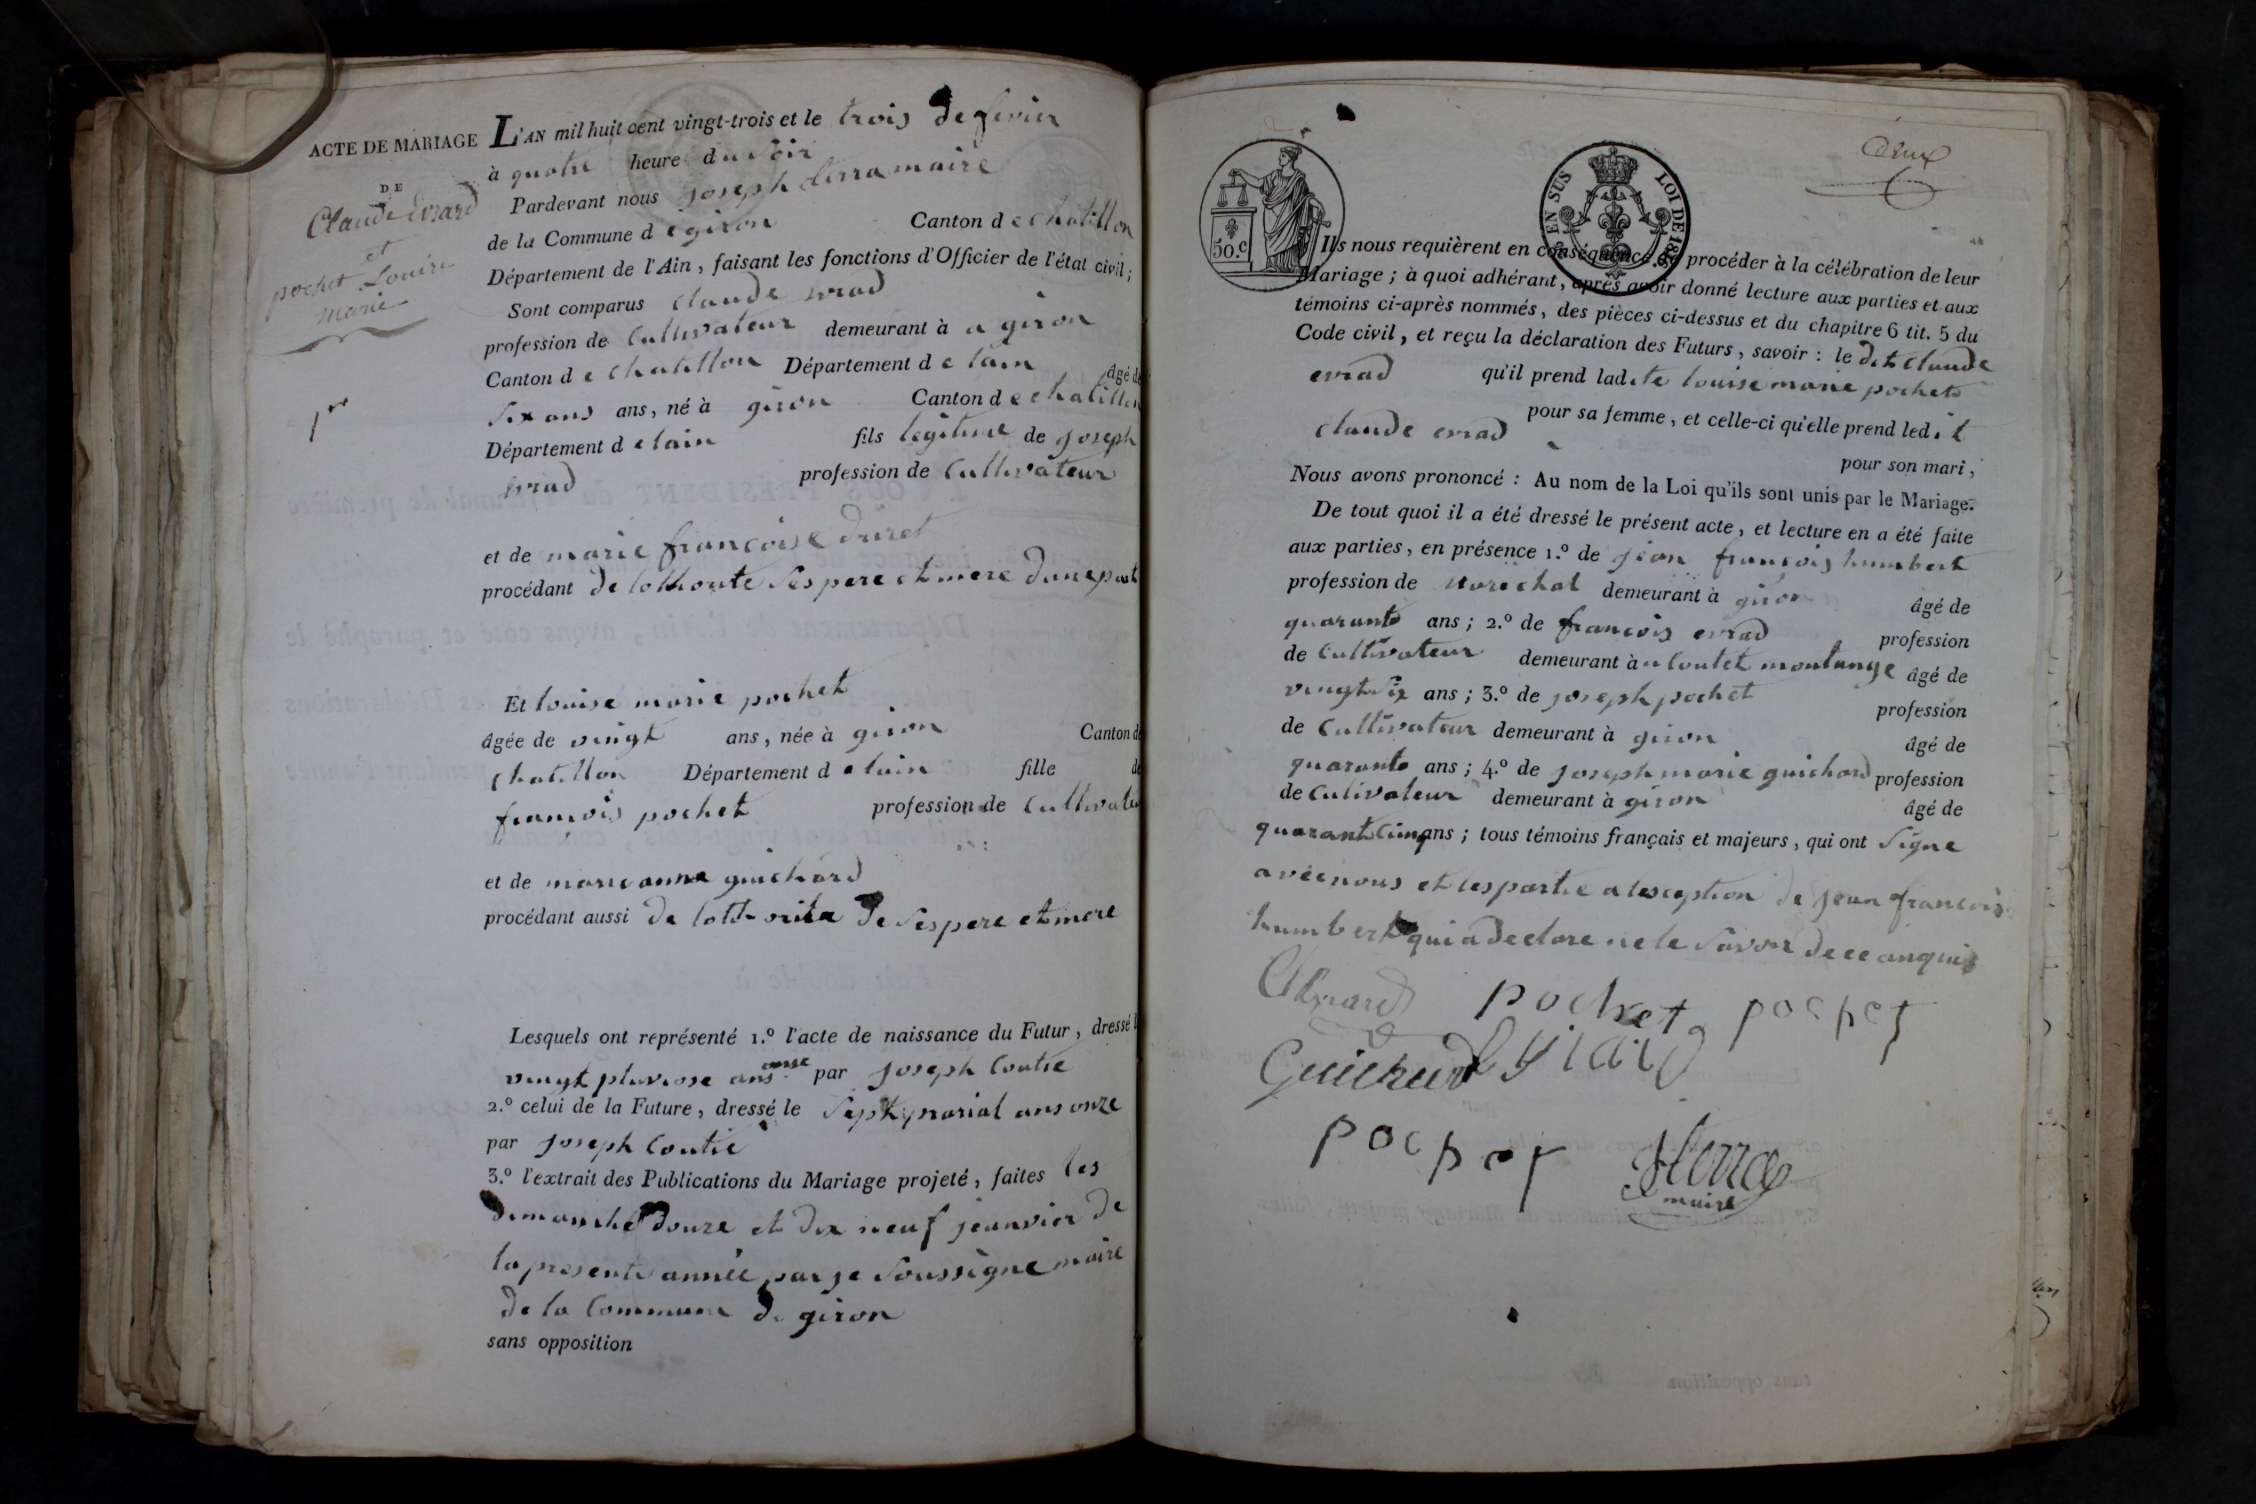 ACTE DE MARIAGE
DE
Claude Evrard
et
pochet Louise
marie
1re
L'AN mil huit cent vingt-trois et le trois de fevrier
à quatre heure du soir
Pardevant nous joseph maire
de la Commune de giron Canton de chatillon
Département de l'Ain, faisant les fonctions d'Officier de l'état civil;
Sont comparus claude evrad
profession de Cultivateur demeurant à a giron
Canton de chatillon Département de lain âgé de
six ans ans, né à giron Canton de chatillon
Département de lain fils legitime de joseph
evrad profession de Cultivateur
et de marie françoise duret
procédant de lothorite ses pere et mere dune part
Et louise marie pochet
âgée de vingt ans, née à giron Canton de
chatillon Département de lain fille de
françois pochet profession de Cultivateu
et de marie anna guichard
procédant aussi de de ses pere et mere
Lesquels ont représenté 1.º l'acte de naissance du Futur, dressé l
vingt pluviose ans onse par joseph Coutie
2.º celui de la Future, dressé le sept prarial ans onze
par joseph Coutie
3.º l'extrait des Publications du Mariage projeté, faites les
dimanche douze et dix neuf jeanvier de
la presente année par je soussigne maire
de la Commune de giron
sans opposition
50.c
EN SUS LOI DE 18
deux
Ils nous requièrent en conséquence de procéder à la célébration de leur
Mariage; à quoi adhérant, après avoir donné lecture aux parties et aux
témoins ci-après nommés, des pièces ci-dessus et du chapitre 6 tit. 5 du
Code civil, et reçu la déclaration des Futurs, savoir: le dit claude
evrad qu'il prend ladite louise marie pochet
pour sa femme, et celle-ci qu'elle prend ledit
claude evrad
pour son mari,
Nous avons prononcé: Au nom de la Loi qu'ils sont unis par le Mariage.
De tout quoi il a été dressé le présent acte, et lecture en a été faite
aux parties, en présence 1.º de jean françois humbert
profession de marechal demeurant à giron âgé de
quarante ans; 2.º de françois evrad profession
de Cultivateur demeurant à montange âgé de
vingt six ans; 3.º de joseph pochet profession
de Cultivateur demeurant à giron âgé de
quarante ans; 4.º de joseph marie guichard profession
de Cutivateur demeurant à giron âgé de
quarante Cinq ans; tous témoins français et majeurs, qui ont signe
avec nous et les partie a lesception de jean françois
humbert qui a declare ne le savoir de ce anquis
Evrard pochet pochet
Guichard
pochet
maire